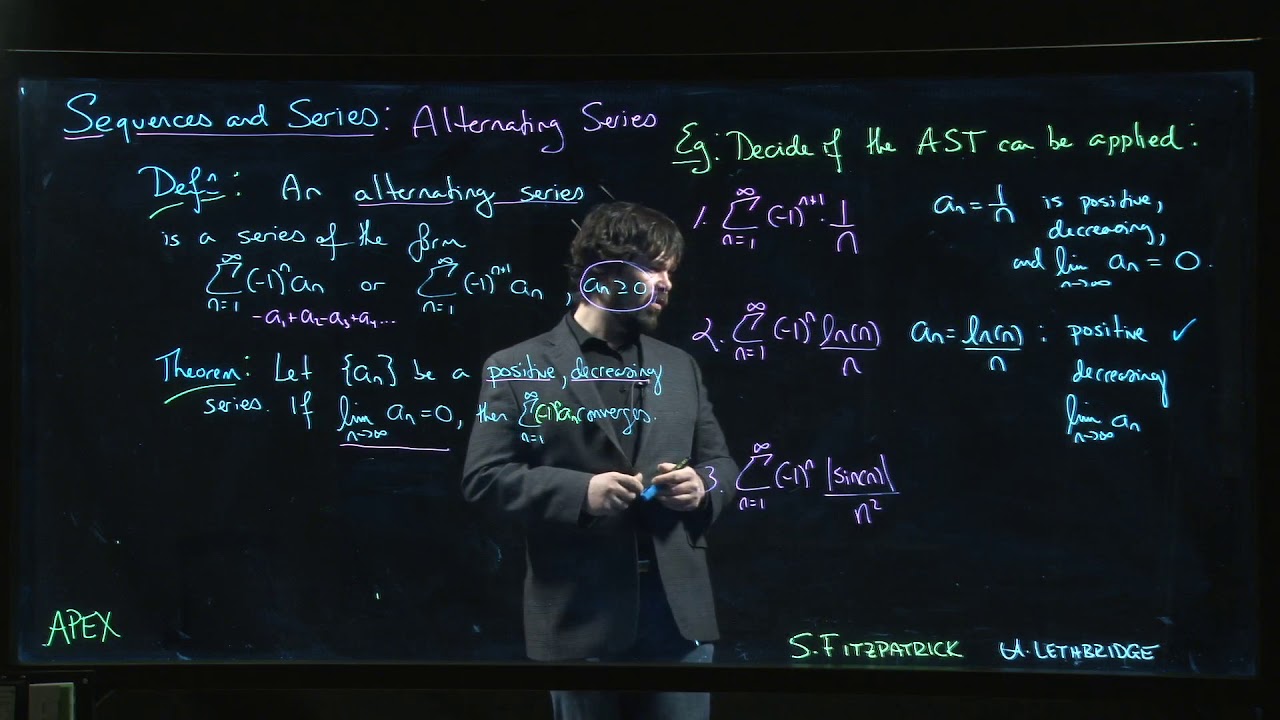 Sequences and Series: Alternating Series
Defn: An alternating series
is a series of the form
∞∑n=1 (-1)^n an or ∞∑n=1 (-1)^(n+1) an, an ≥ 0
-a1+a2-a3+a4...
Theorem: Let {an} be a positive, decreasing
series. If lim n→∞ an = 0, then ∞∑n=1 (-1)^n an converges.
Eg: Decide if the AST can be applied:
1. ∞∑n=1 (-1)^(n+1) · 1/n
an = 1/n is positive,
decreasing,
and lim n→∞ an = 0.
2. ∞∑n=1 (-1)^n ln(n)/n
an = ln(n)/n : positive ✓
decreasing
lim n→∞ an
3. ∞∑n=1 (-1)^n |sin(n)|/n^2
APEX
S. FITZPATRICK U. LETHBRIDGE